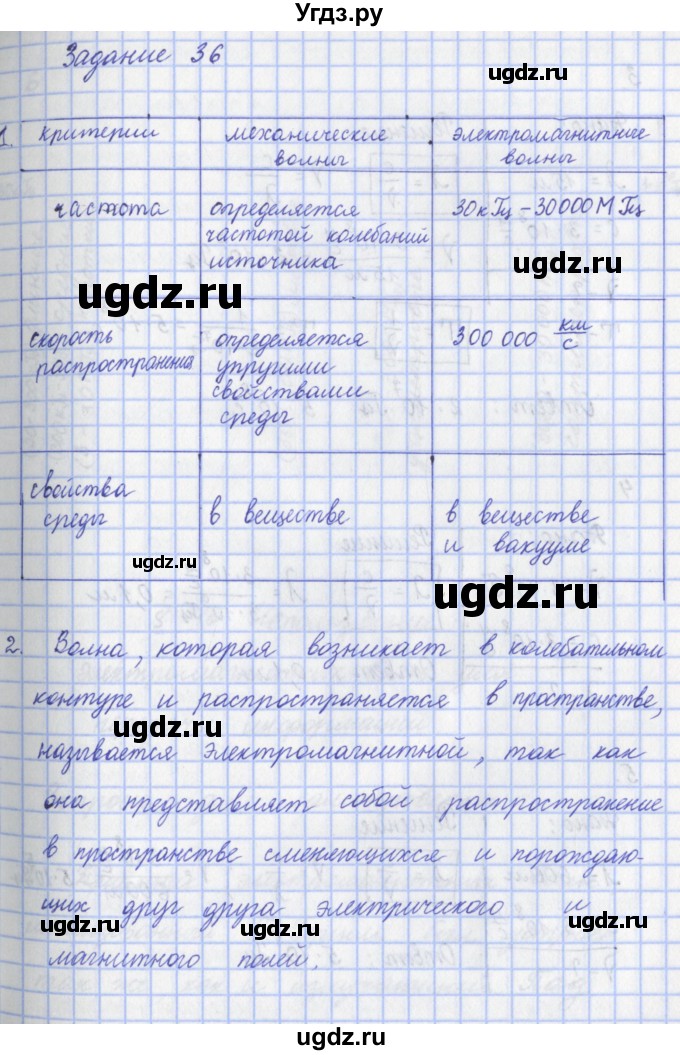 Угдз.ру
Задание 36
ugdz.ru
1. критерии механические волны электромагнитные волны
частота
определяется
частотой колебаний
источника
30 кГц – 30000 МГц
ugdz.ru
ugdz.ru
скорость
распространения
определяется
упругими
свойствами
среды
300 000 км/с
ugdz.ru
ugdz.ru
свойства
среды
в веществе
в веществе
и вакууме
ugdz.ru
ugdz.ru
2. Волна, которая возникает в колебательном
контуре и распространяется в пространстве,
ugdz.ru
называется электромагнитной, так как
она представляет собой распространение
в пространстве сменяющихся и порождаю-
щих друг друга электрического и
ugdz.ru
ugdz.ru
магнитного полей.
ugdz.ru